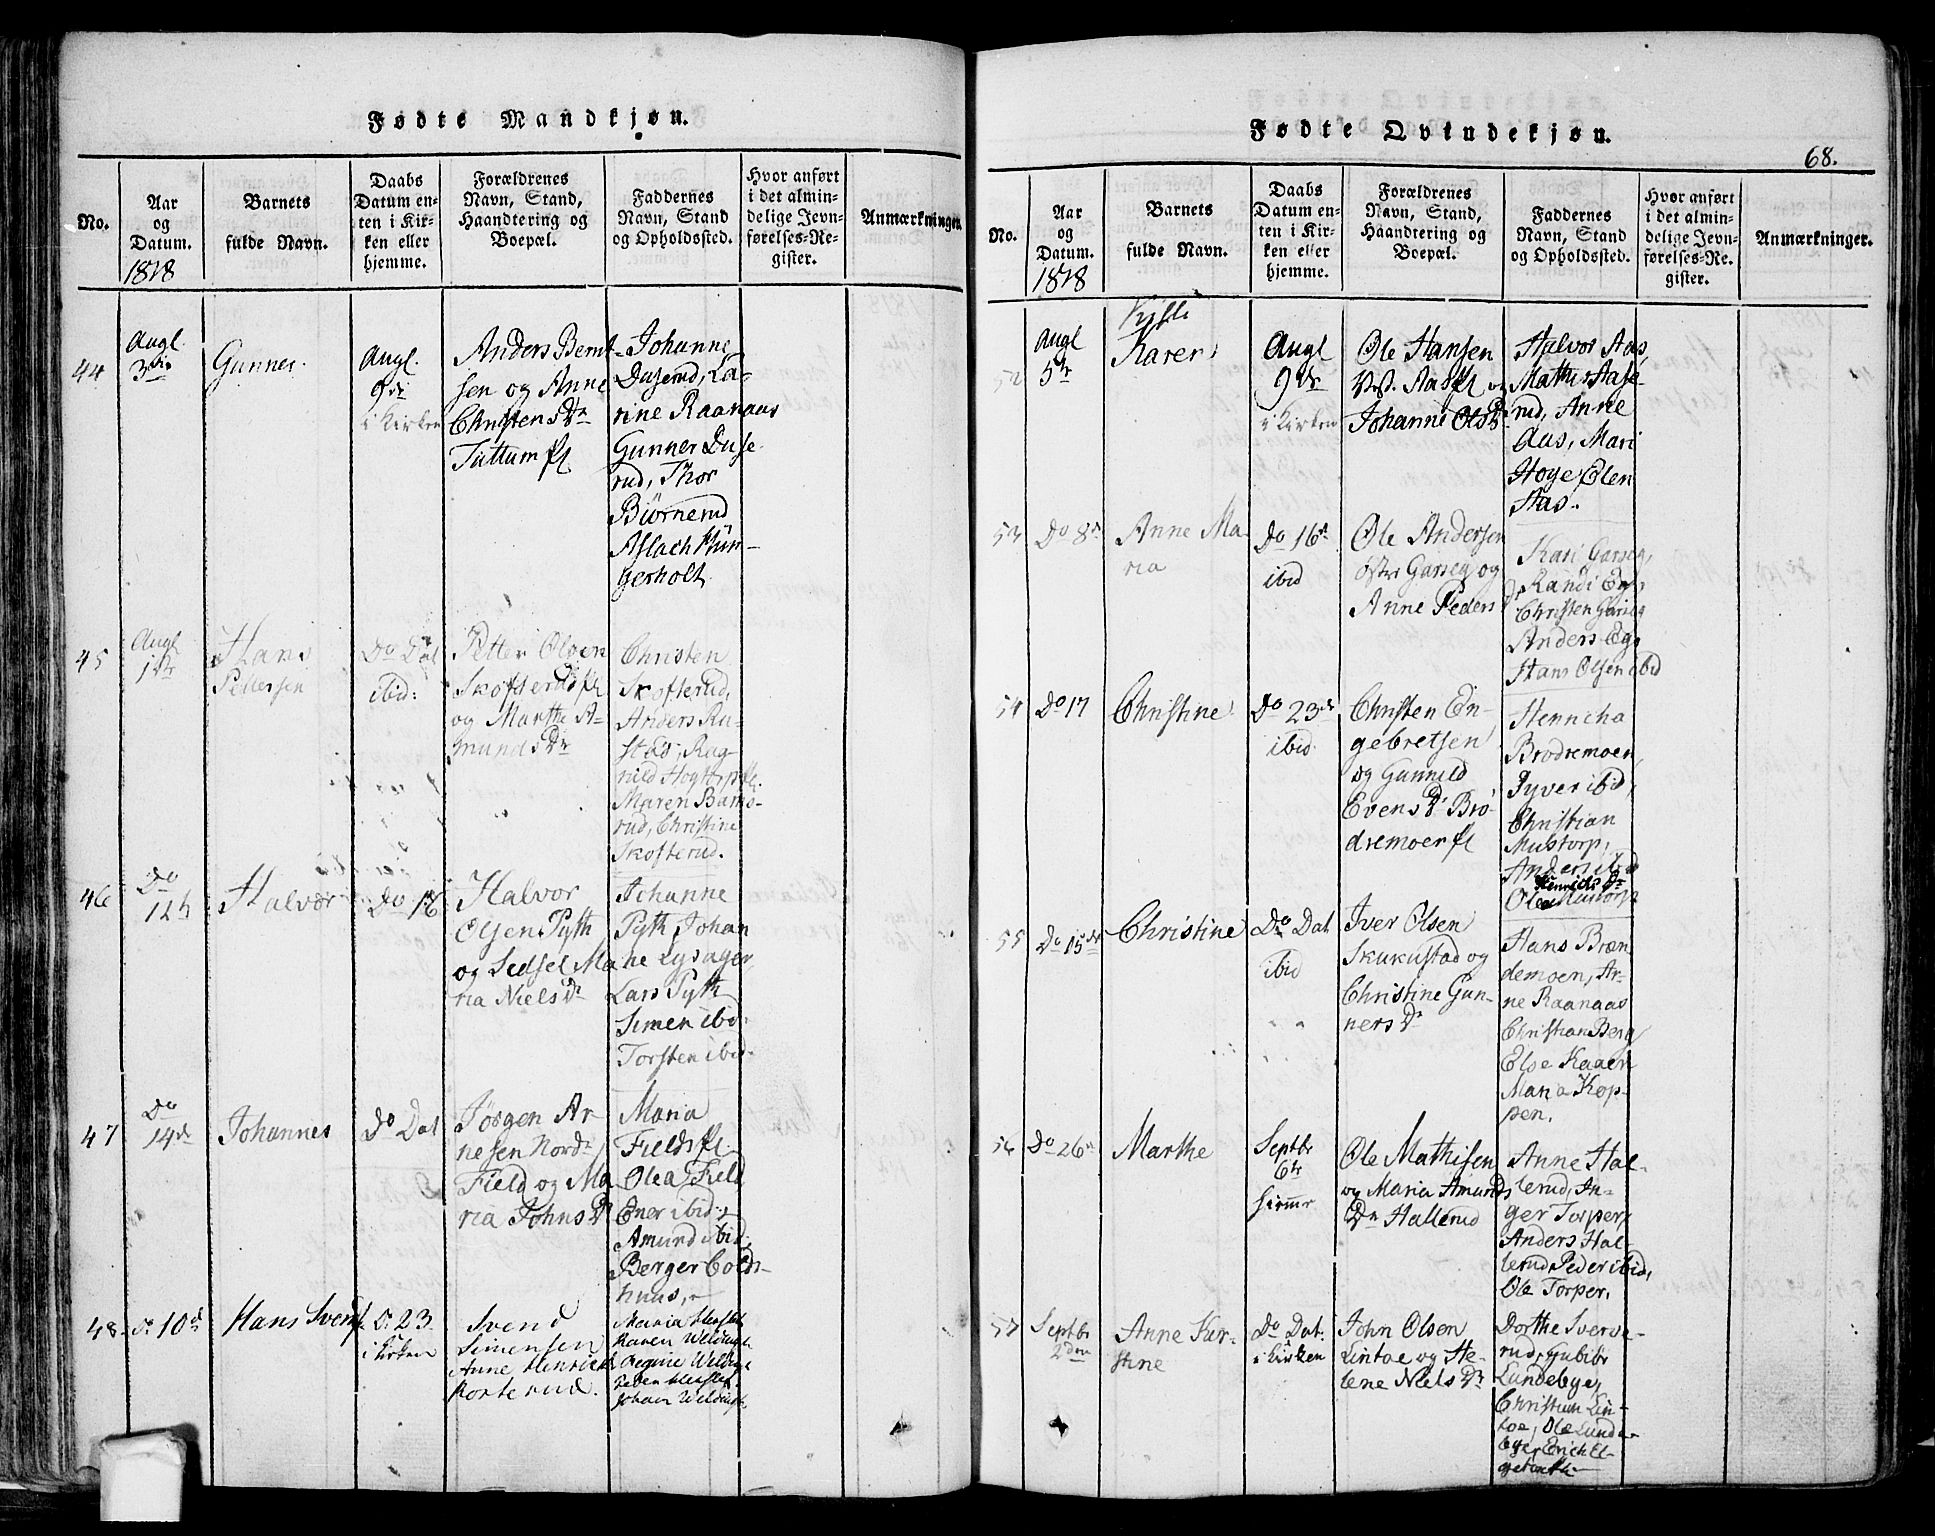 Fødte Mandkjøn.
No.
Aar
og
Datum.
1818
Barnets
fulde Navn.
Daabs
Datum en-
ten i Kir-
ken eller
hjemme.
Forældrenes
Navn, Stand,
Haandtering og
Boepæl.
Faddernes
Navn, Stand
og Opholdssted.
Hvor anført
i det almin-
delige Jevn-
førelses-Re-
gister.
Anmærkninger.
44
Augl
Gunner
Augl
9de
i Kirken
Anders Bernt-
sen og Anne
Christens Dr
Tuttum
Johanne
Duserud, La-
rine Raanaas
Gunner Duse-
rud, Thor
Biörnerud
Aslach Kün-
gerholt.
45
Augl
Hans
Pettersen
Do Dat
ibid:
Petter Olsen
Skofterud
og Marthe A-
munds Dr
Christen
Skofterud,
Anders Ru-
stad, Rag-
nild
Maren
rud, Christine
Skofterud.
46
Do
12te
Halvor
Do 16
Halvor
Olsen Pyth
og Sidsel Ma
ria Niels Dr
Johanne
Pyth, Johan
ne Lysager,
Lars Pyth
Simen ibid.
Torsten ibid.
47
Do
14de
Johannes
Do Dat
Jörgen Ar-
nesen Nordr
Field og Ma
ria Johns Dr
Maria
Fields
Olea Field
Ener ibid.
Amund ibid.
Berger Colds-
huus,
48
Do 10de
Hans Svends
D. 23
i Kirken
Svend
Simensen
Anne Henrichs
Korterud.
Maria
Karen
Regine
Johan
Fødte Qvindekjøn.
68.
No.
Aar
og
Datum.
1818
Barnets
fulde Navn.
Daabs
Datum en-
ten i Kir-
ken eller
hjemme.
Forældrenes
Navn, Stand,
Haandtering og
Boepæl.
Faddernes
Navn, Stand
og Opholdssted.
Hvor anført
i det almin-
delige Jevn-
førelses-Re-
gister.
Anmærkninger.
52
Augl
5te
Karen
Augl
9de
i Kirken
Ole Hansen
Aas og
Johanne Ols Dr
Halvor Aas,
Mathis Aase-
rud, Anne
Aas, Mari
Hoye, Elen
Aas.
53
Do 8de
Anne Ma
ria
Do 16de
ibid
Ole Andersen
östre Garseg og
Anne Peders Dr
Kari Garseg,
Randi Eg,
Christen Garseg
Anders Eg,
Hans Olsen ibid
54
Do 17
Christine
Do 23de
ibid
Christen En-
gebretsen
og Gunnild
Evens Dr Brö-
dremoen
Henricha
Brödremoen,
Syver ibid,
Christian
Mustorp,
Anders ibid
Henrichs Dr
Olea Mustorp
55
Do 15de
Christine
Do Dat
ibid
Iver Olsen
Skukustad og
Christine Gun-
ners Dr
Hans Bræn
demoen, Ar-
ne Raanaas
Christian Berg
Else Kaaen
Maria Kop-
pen.
56
Do 26de
Marthe
Septbr
6te
Ole Mathisen
og Maria Amunds
Dr Hallerud
Anne Hal-
lerud, In-
ger Torper,
Anders Hal-
lerud, Peder ibid,
Ole Torper,
57
Septbr
2den
Anne Kir-
stine
Do Dat.
i Kirken
John Olsen
Lintoe og He-
lene Niels Dr
Dorthe Sverve-
rud, Gubiör
Lundebye,
Christian Lin-
toe, Ole Lunde-
bye, Erich El-